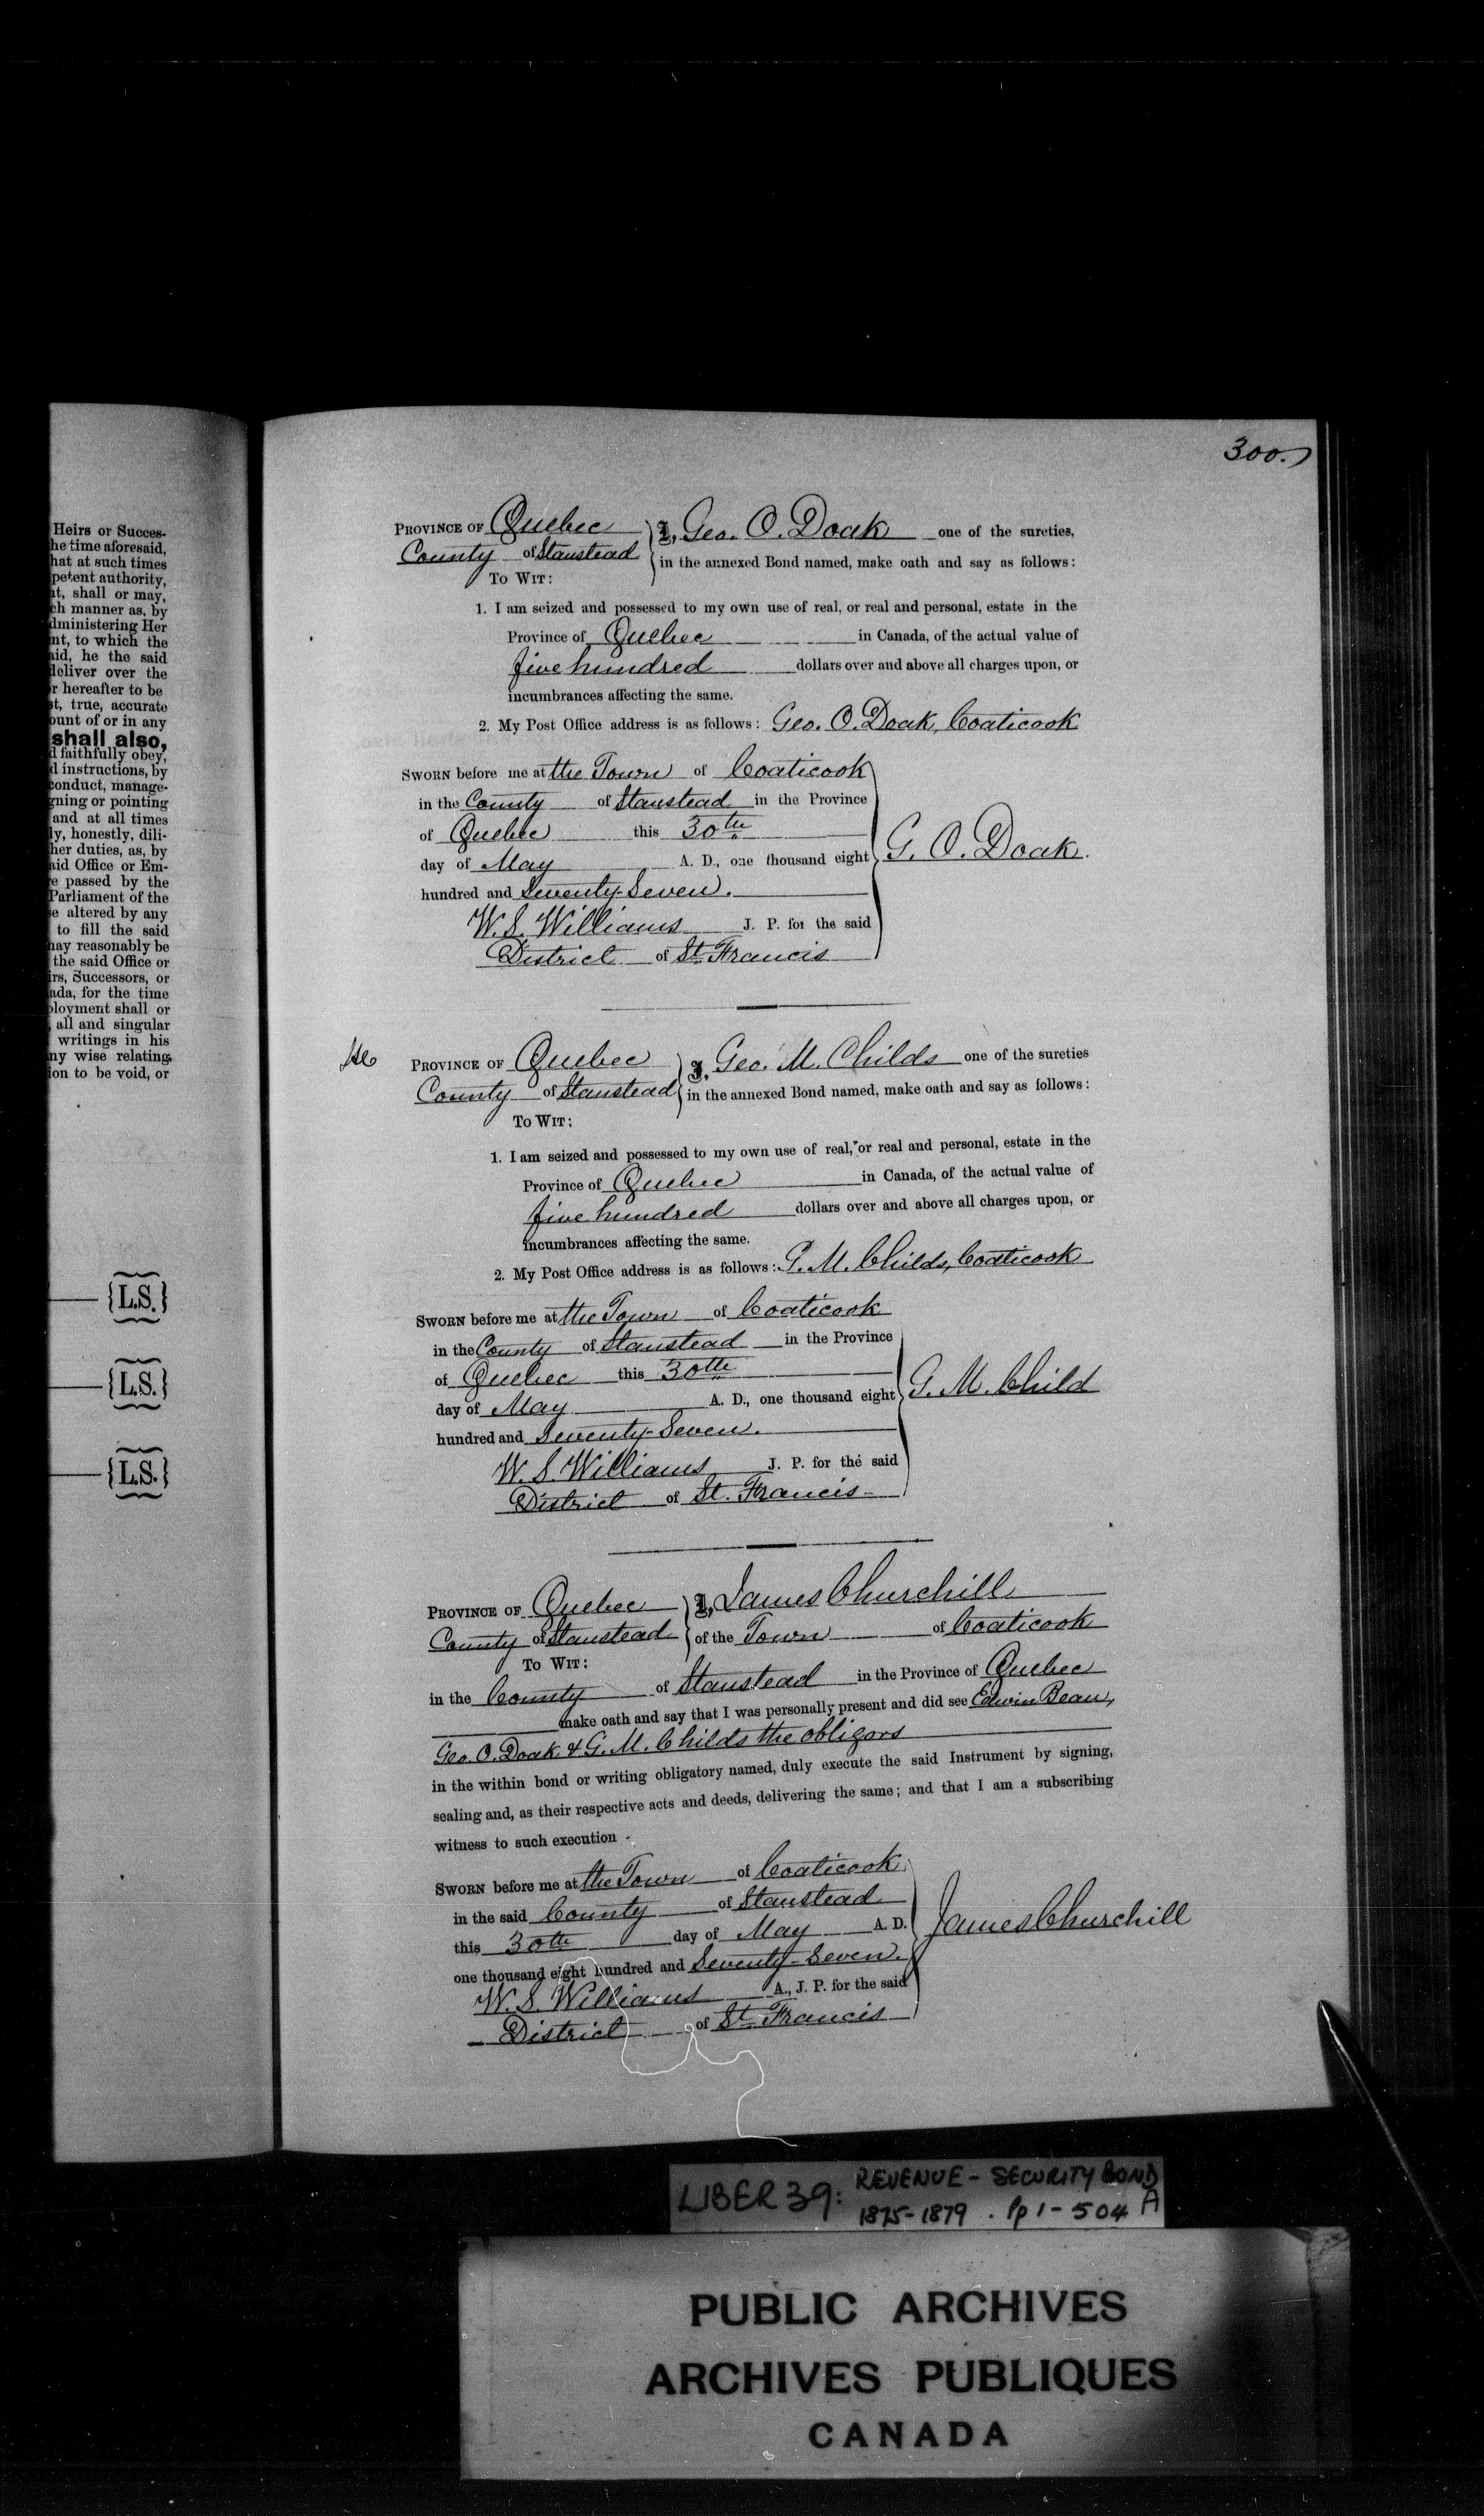 Heirs or Succes-
he time aforesaid,
hat at such times
petent authority,
nt, shall or may,
ch manner as, by
dministering Her
nt, to which the
aid, he the said
deliver over the
r hereafter to be
st, true, accurate
ount of or in any
shall also,
d faithfully obey,
d instructions, by
conduct, manage-
gning or pointing
and at all times
ly, honestly, dili-
her duties, as, by
aid Office or Em-
e passed by the
Parliament of the
e altered by any
to fill the said
may reasonably be
the said Office or
irs, Successors, or
ada, for the time
ployment shall or
, all and singular
writings in his
ny wise relating
ion to be void, or
{L.S.}
{L.S.}
{L.S.}
300.
PROVINCE OF Quebec } I, Geo. O. Doak one of the sureties,
County of Stanstead } in the annexed Bond named, make oath and say as follows:
TO WIT:
1. I am seized and possessed to my own use of real, or real and personal, estate in the
Province of Quebec in Canada, of the actual value of
five hundred dollars over and above all charges upon, or
incumbrances affecting the same.
2. My Post Office address is as follows: Geo. O. Doak, Coaticook
SWORN before me at the Town of Coaticook
in the County of Stanstead in the Province
of Quebec this 30th
day of May A. D., one thousand eight } G. O. Doak.
hundred and Seventy-Seven.
W. S. Williams J. P. for the said
District of St. Francis
PROVINCE OF Quebec } I, Geo. M. Childs one of the sureties
County of Stanstead } in the annexed Bond named, make oath and say as follows:
TO WIT:
1. I am seized and possessed to my own use of real, or real and personal, estate in the
Province of Quebec in Canada, of the actual value of
five hundred dollars over and above all charges upon, or
incumbrances affecting the same.
2. My Post Office address is as follows: G. M. Childs, Coaticook
SWORN before me at the Town of Coaticook
in the County of Stanstead in the Province
of Quebec this 30th
day of May A. D., one thousand eight } G. M. Child
hundred and Seventy-Seven.
W. S. Williams J. P. for the said
District of St. Francis
PROVINCE OF Quebec } I, James Churchill
County of Stanstead } of the Town of Coaticook
TO WIT:
in the County of Stanstead in the Province of Quebec
make oath and say that I was personally present and did see Edwin Bean,
Geo. O. Doak & G. M. Childs the obligors
in the within bond or writing obligatory named, duly execute the said Instrument by signing,
sealing and, as their respective acts and deeds, delivering the same; and that I am a subscribing
witness to such execution
SWORN before me at the Town of Coaticook
in the said County of Stanstead
this 30th day of May A. D. } James Churchill
one thousand eight hundred and Seventy-Seven.
W. S. Williams A., J. P. for the said
District of St. Francis
LIBER 39: REVENUE - SECURITY BOND
1875-1879 . Pp 1-504 A
PUBLIC ARCHIVES
ARCHIVES PUBLIQUES
CANADA